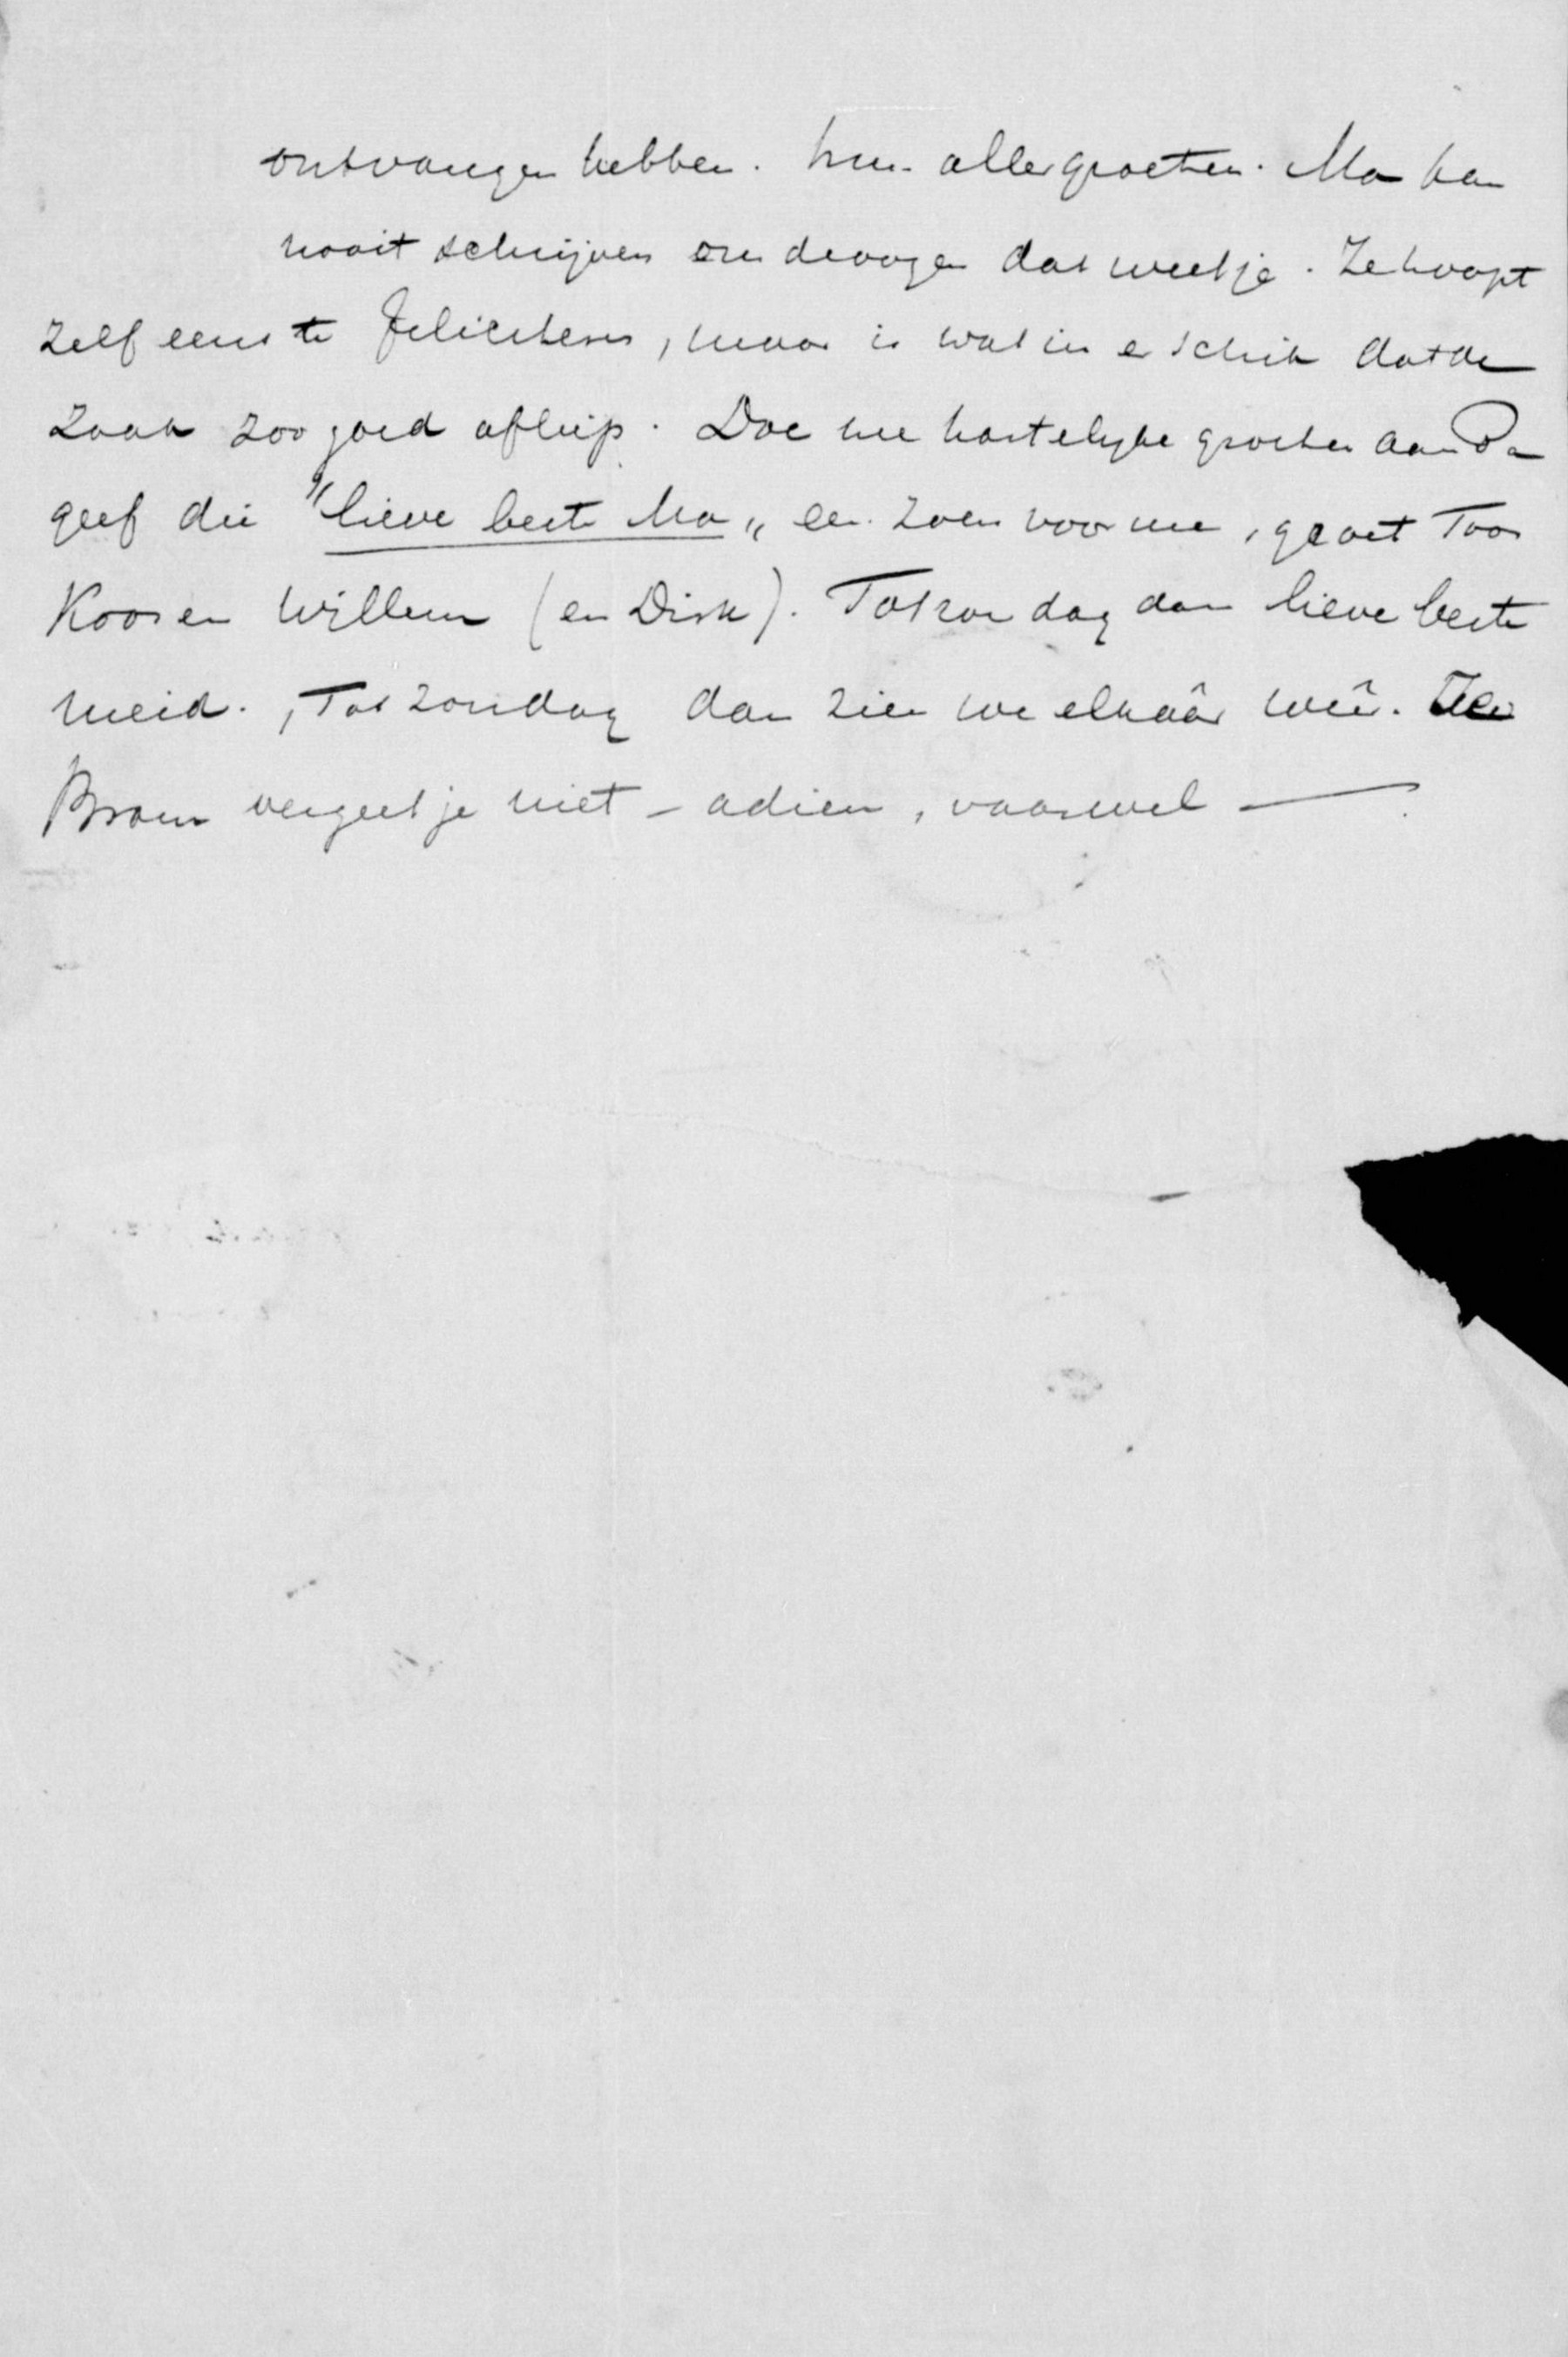 ontvangen hebben. hun aller groeten. Ma kan
nooit schrijven om de oogen dat weet je. Ze hoopt
zelf eens te feliciteren, maar is wat in er schik dat de
zaak zoo goed afliep. Doe me hartelyke groeten aan Pa
geef die "lieve beste Ma" een zoen voor me, groet Toos
Koos en Willem (en Dirk). Tot zondag dan lieve beste
meid. Tot zondag dan zien we elkaâr weêr.
Bram vergeet je niet - adieu, vaarwel —.